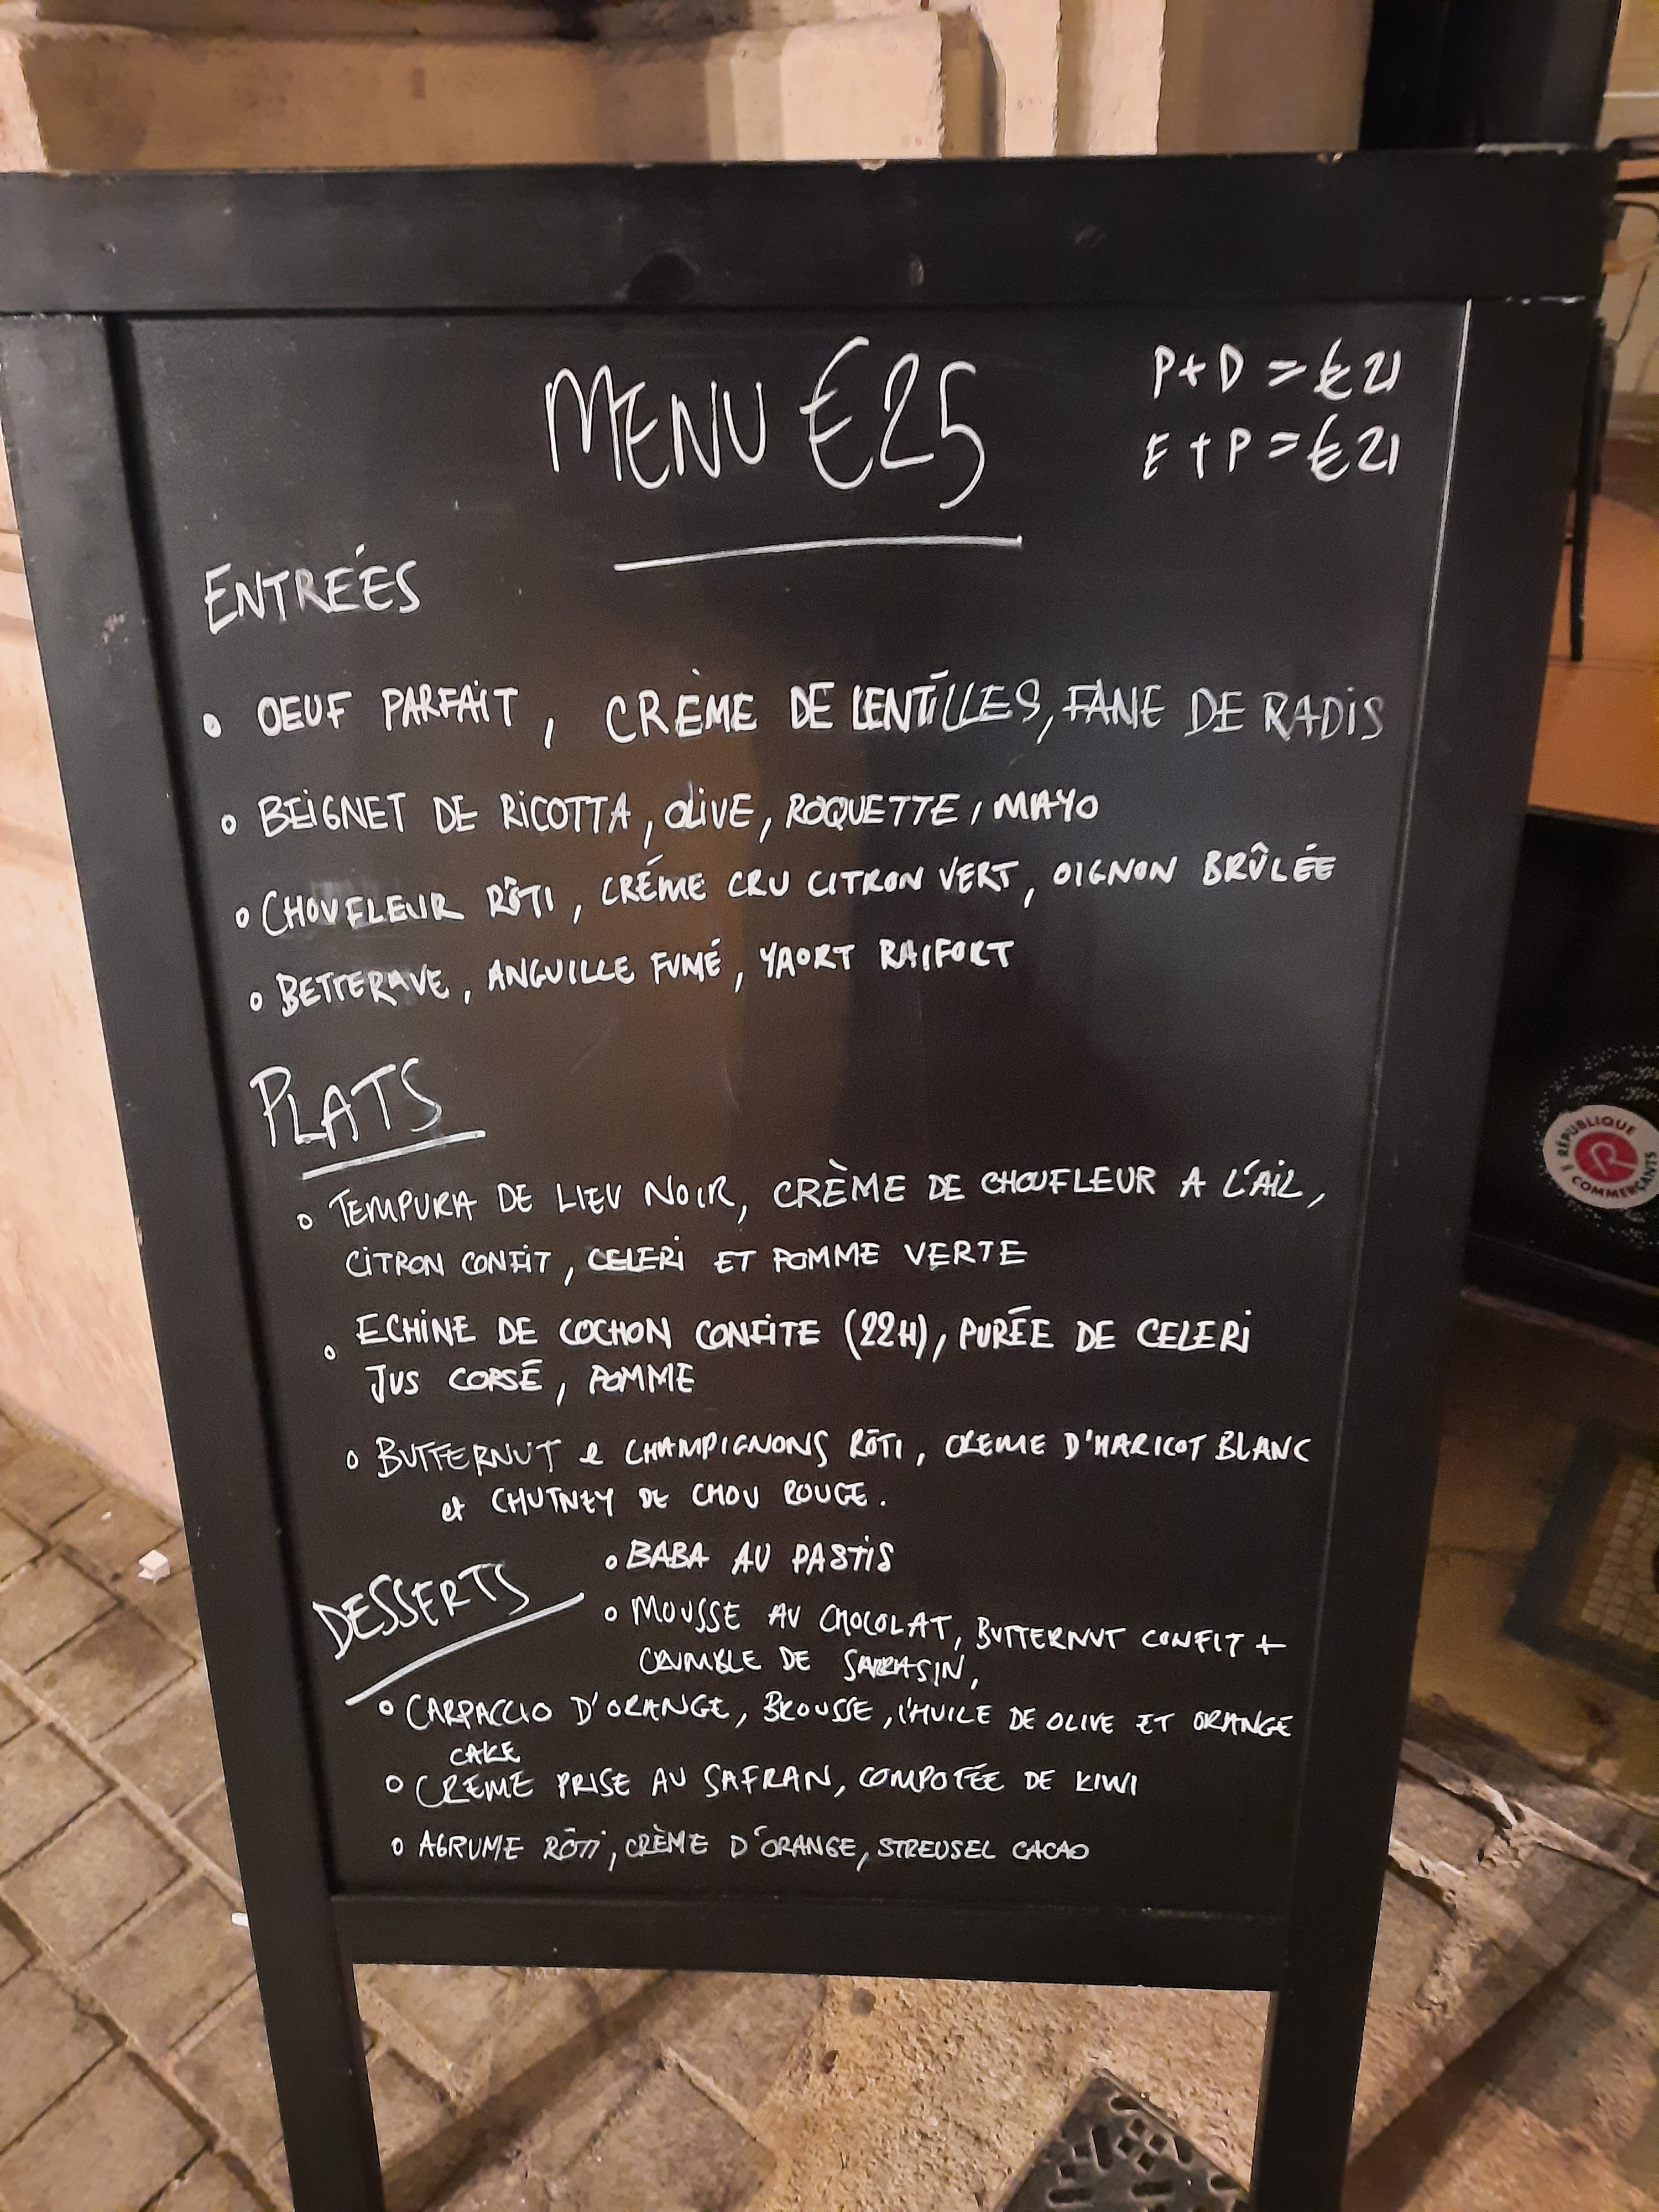 MENU €25
P+D = €21
E+P = €21
ENTREÉS
OEUF PARFAIT, CRÈME DE LENTILLES, FANE DE RADIS
BEIGNET DE RICOTTA, OLIVE, ROQUETTE, MAYO
CHOUFLEUR RÔTI, CRÉME CRU CITRON VERT, OIGNON BRÛLÉE
BETTERAVE, ANGUILLE FUMÉ, YAORT RAIFORT
PLATS
TEMPURA DE LIEU NOIR, CRÈME DE CHOUFLEUR A L'AIL,
CITRON CONFIT, CELERI ET POMME VERTE
ECHINE DE COCHON CONFITE (22H), PURÉE DE CELERI
JUS CORSÉ, POMME
BUTTERNUT & CHAMPIGNONS RÔTI, CREME D'HARICOT BLANC
et CHUTNEY DE CHOU ROUGE.
DESSERTS
BABA AU PASTIS
MOUSSE AU CHOCOLAT, BUTTERNUT CONFIT +
CRUMBLE DE SARRASIN,
CARPACCIO D'ORANGE, BROUSSE, L'HUILE DE OLIVE ET ORANGE
CAKE
CREME PRISE AU SAFRAN, COMPOTÉE DE KIWI
AGRUME RÔTI, CRÈME D'ORANGE, STREUSEL CACAO
RÉPUBLIQUE
COMMERÇANTS